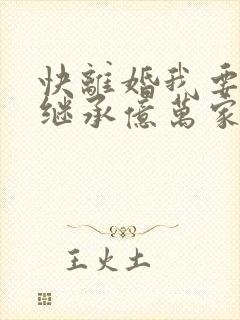 快離婚我要
继承億萬家
王火土